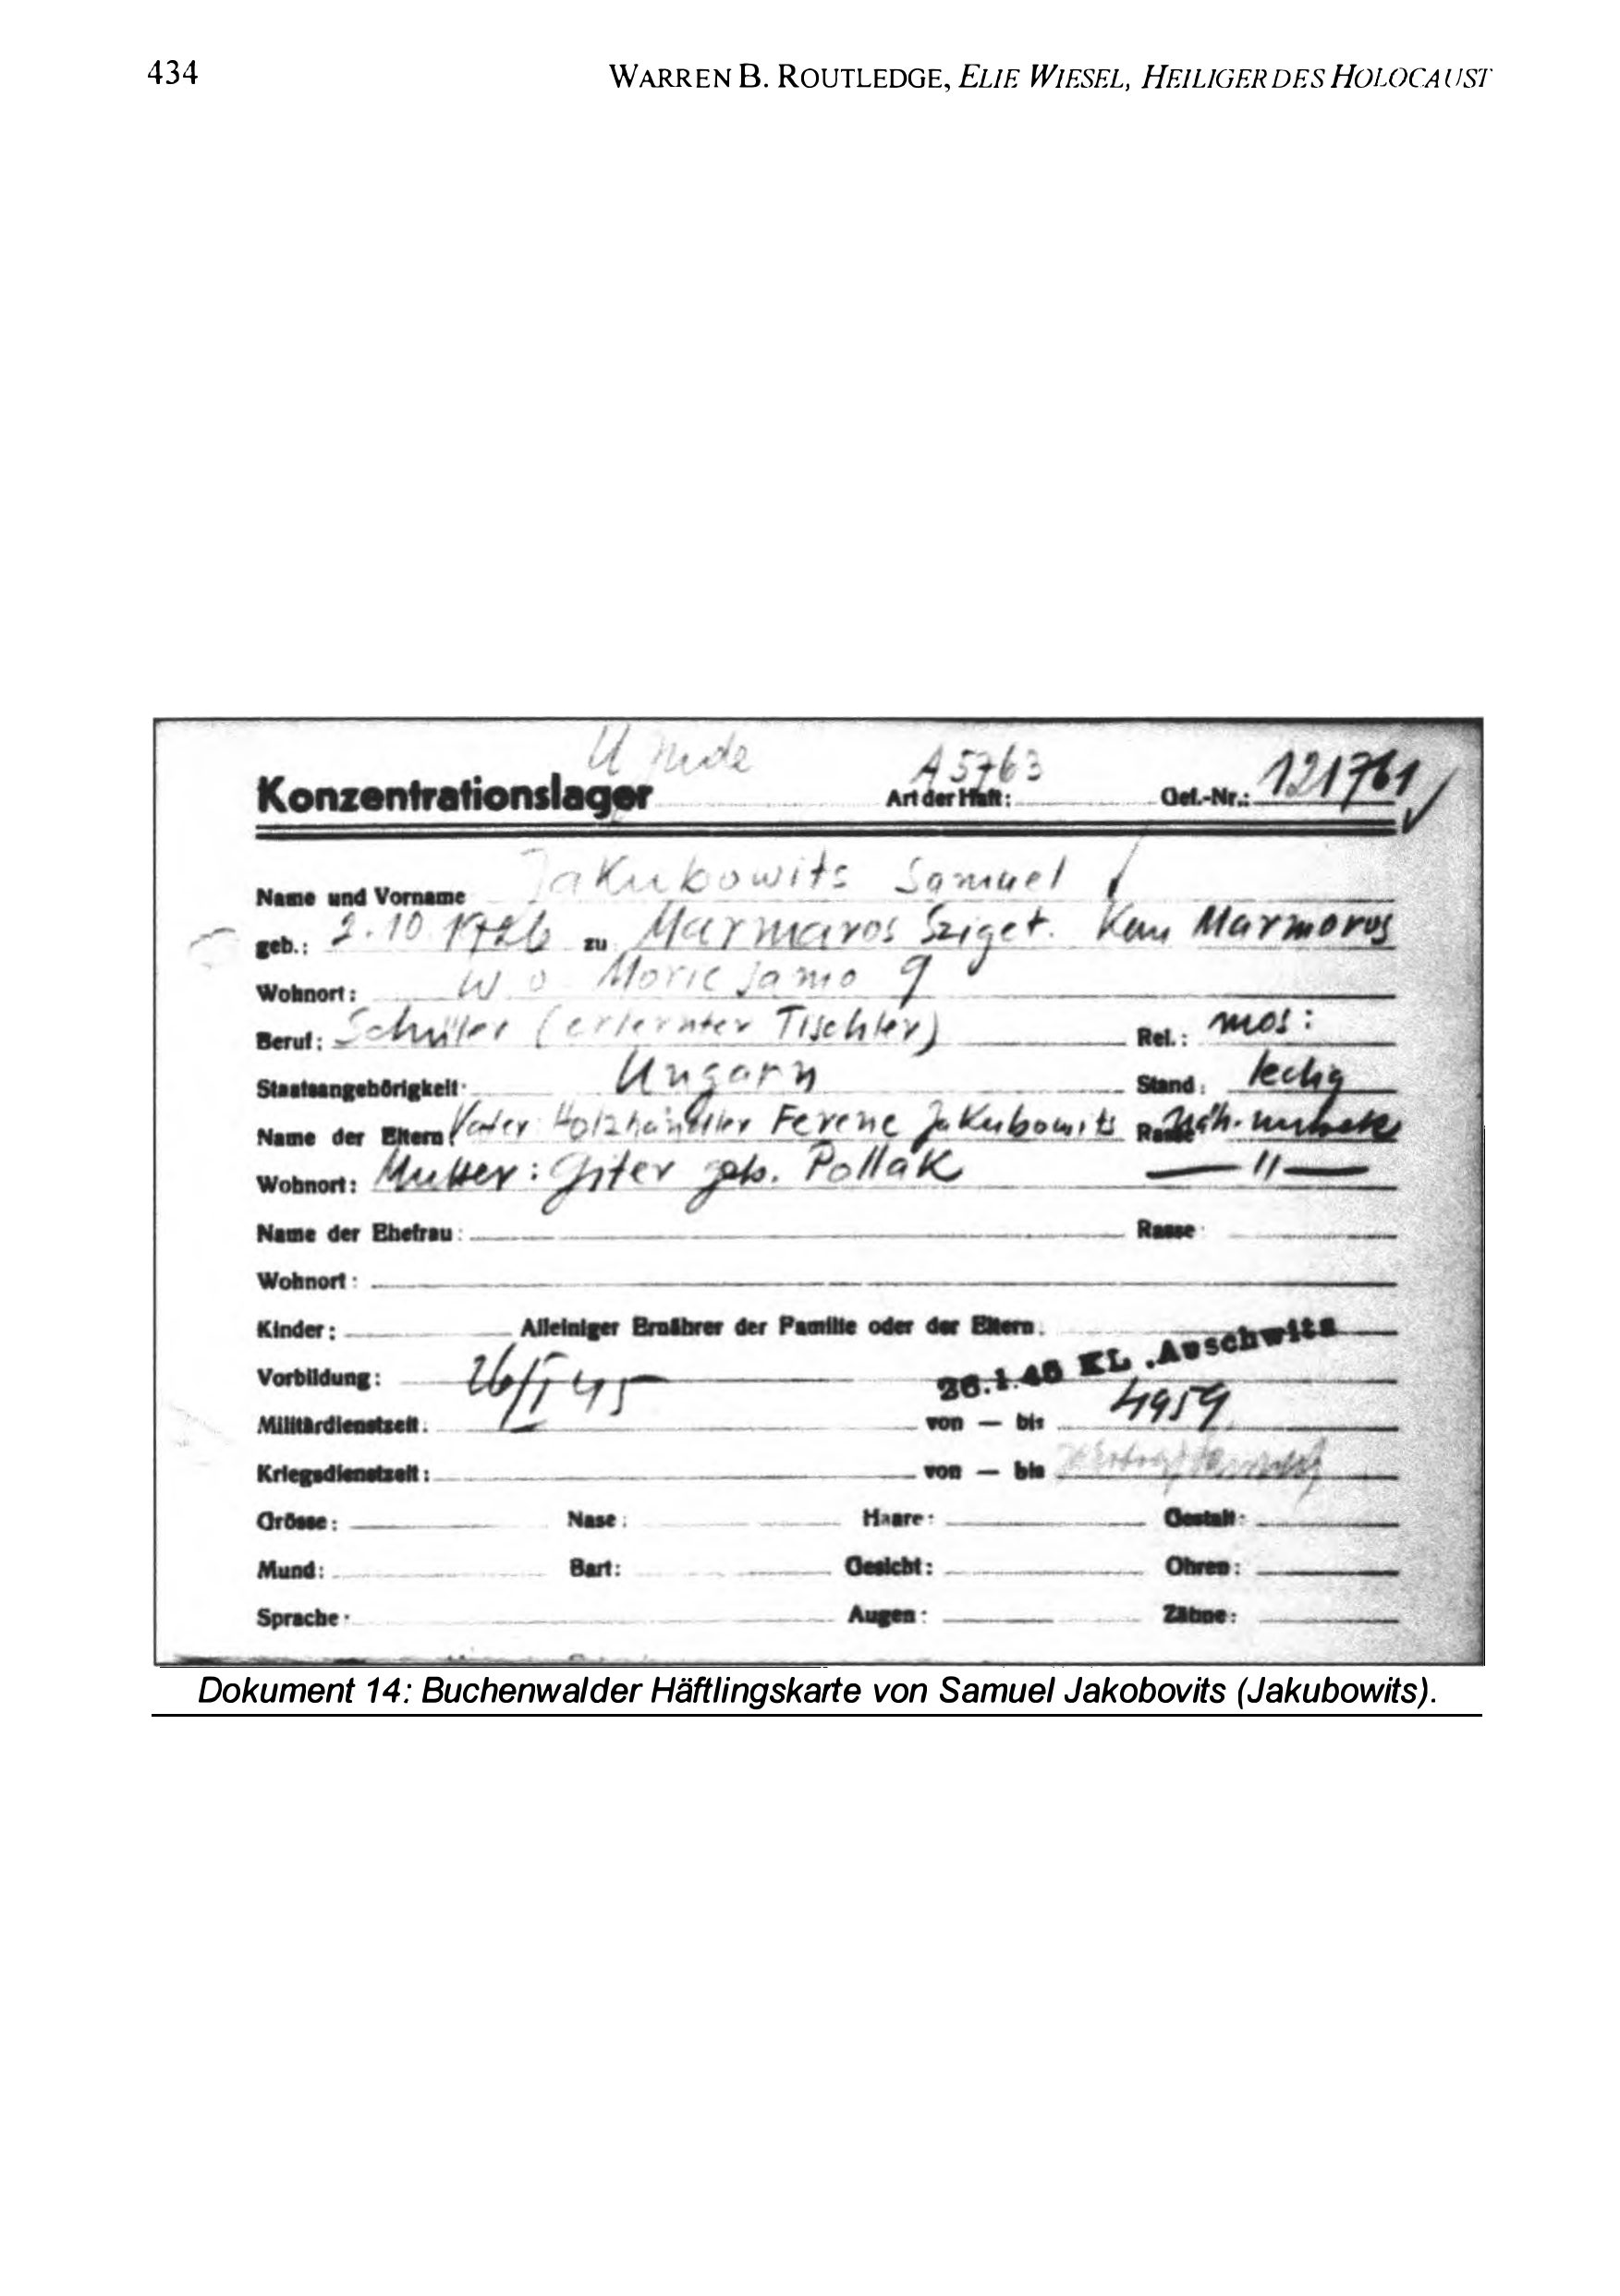 434 WARREN B. ROUTLEDGE, ELIE WIESEL, HEILIGER DES HOLOCAUST
U Jude A 5763
Konzentrationslager Art der Haft: Gef.-Nr.: 121761
Name und Vorname Jakubowits Samuel
geb.: 2.10 1926 zu Marmaros Sziget. Kom Marmoros
Wohnort: w o Moric 9
Beruf: Schüler (erlernter Tischler) Rel.: mos:
Staatsangehörigkeit: Ungarn Stand: ledig
Name der Eltern Vater: Holzhändler Ferenc Jakubowits Rasse
Wohnort: Mutter: Giter geb. Pollak — 11 —
Name der Ehefrau: Rasse
Wohnort:
Kinder: Alleiniger Ernährer der Familie oder der Eltern:
26.1.45 KL. Auschwitz
Vorbildung: 26/I 45
Militärdienstzeit: von — bis 4959
Kriegsdienstzeit: von — bis
Grösse: Nase: Haare: Gestalt:
Mund: Bart: Gesicht: Ohren:
Sprache: Augen: Zähne:
Dokument 14: Buchenwalder Häftlingskarte von Samuel Jakobovits (Jakubowits).